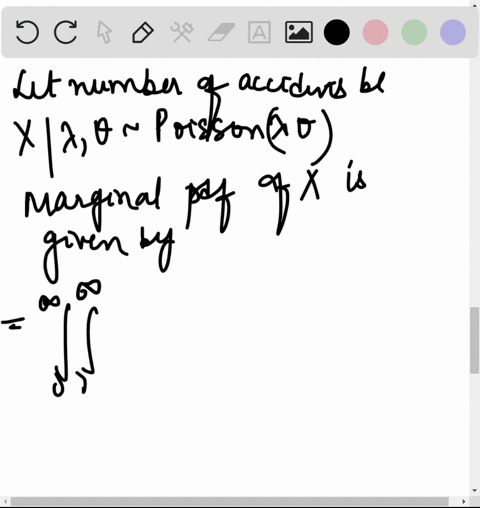 Let number of accidents be
X | λ, θ ~ Poisson(λθ)
Marginal pdf of X is
given by
= ∫∫ ∞ ∞